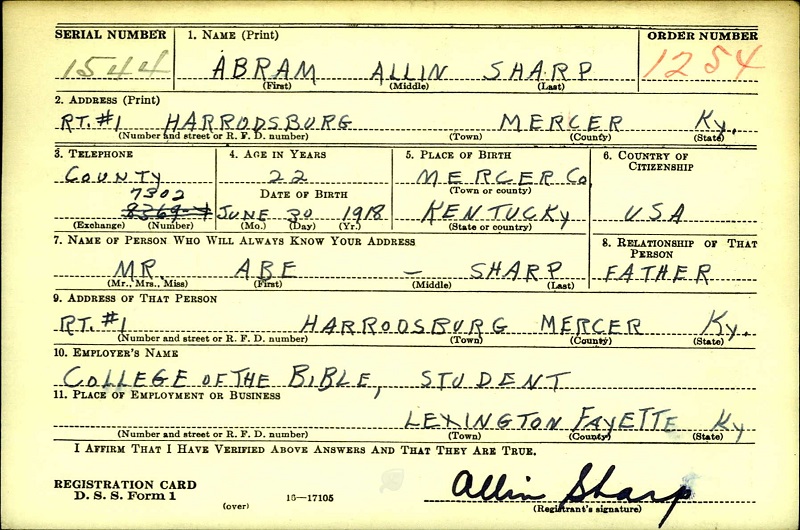 SERIAL NUMBER 1. NAME (Print) ORDER NUMBER
1544 ABRAM ALLIN SHARP 1254
(First) (Middle) (Last)
2. ADDRESS (Print)
RT. #1 HARRODSBURG MERCER Ky.
(Number and street or R. F. D. number) (Town) (County) (State)
3. TELEPHONE 4. AGE IN YEARS 5. PLACE OF BIRTH 6. COUNTRY OF
CITIZENSHIP
COUNTY 22 MERCER Co.
7302 DATE OF BIRTH (Town or county)
JUNE 30 1918 KENTUCKY USA
(Exchange) (Number) (Mo.) (Day) (Yr.) (State or country)
7. NAME OF PERSON WHO WILL ALWAYS KNOW YOUR ADDRESS 8. RELATIONSHIP OF THAT
PERSON
MR. ABE — SHARP FATHER
(Mr., Mrs., Miss) (First) (Middle) (Last)
9. ADDRESS OF THAT PERSON
RT. #1 HARRODSBURG MERCER Ky.
(Number and street or R. F. D. number) (Town) (County) (State)
10. EMPLOYER'S NAME
COLLEGE OF THE BIBLE, STUDENT
11. PLACE OF EMPLOYMENT OR BUSINESS
LEXINGTON FAYETTE Ky
(Number and street or R. F. D. number) (Town) (County) (State)
I AFFIRM THAT I HAVE VERIFIED ABOVE ANSWERS AND THAT THEY ARE TRUE.
REGISTRATION CARD
D. S. S. Form 1 (over) 16—17105 Allin Sharp
(Registrant's signature)